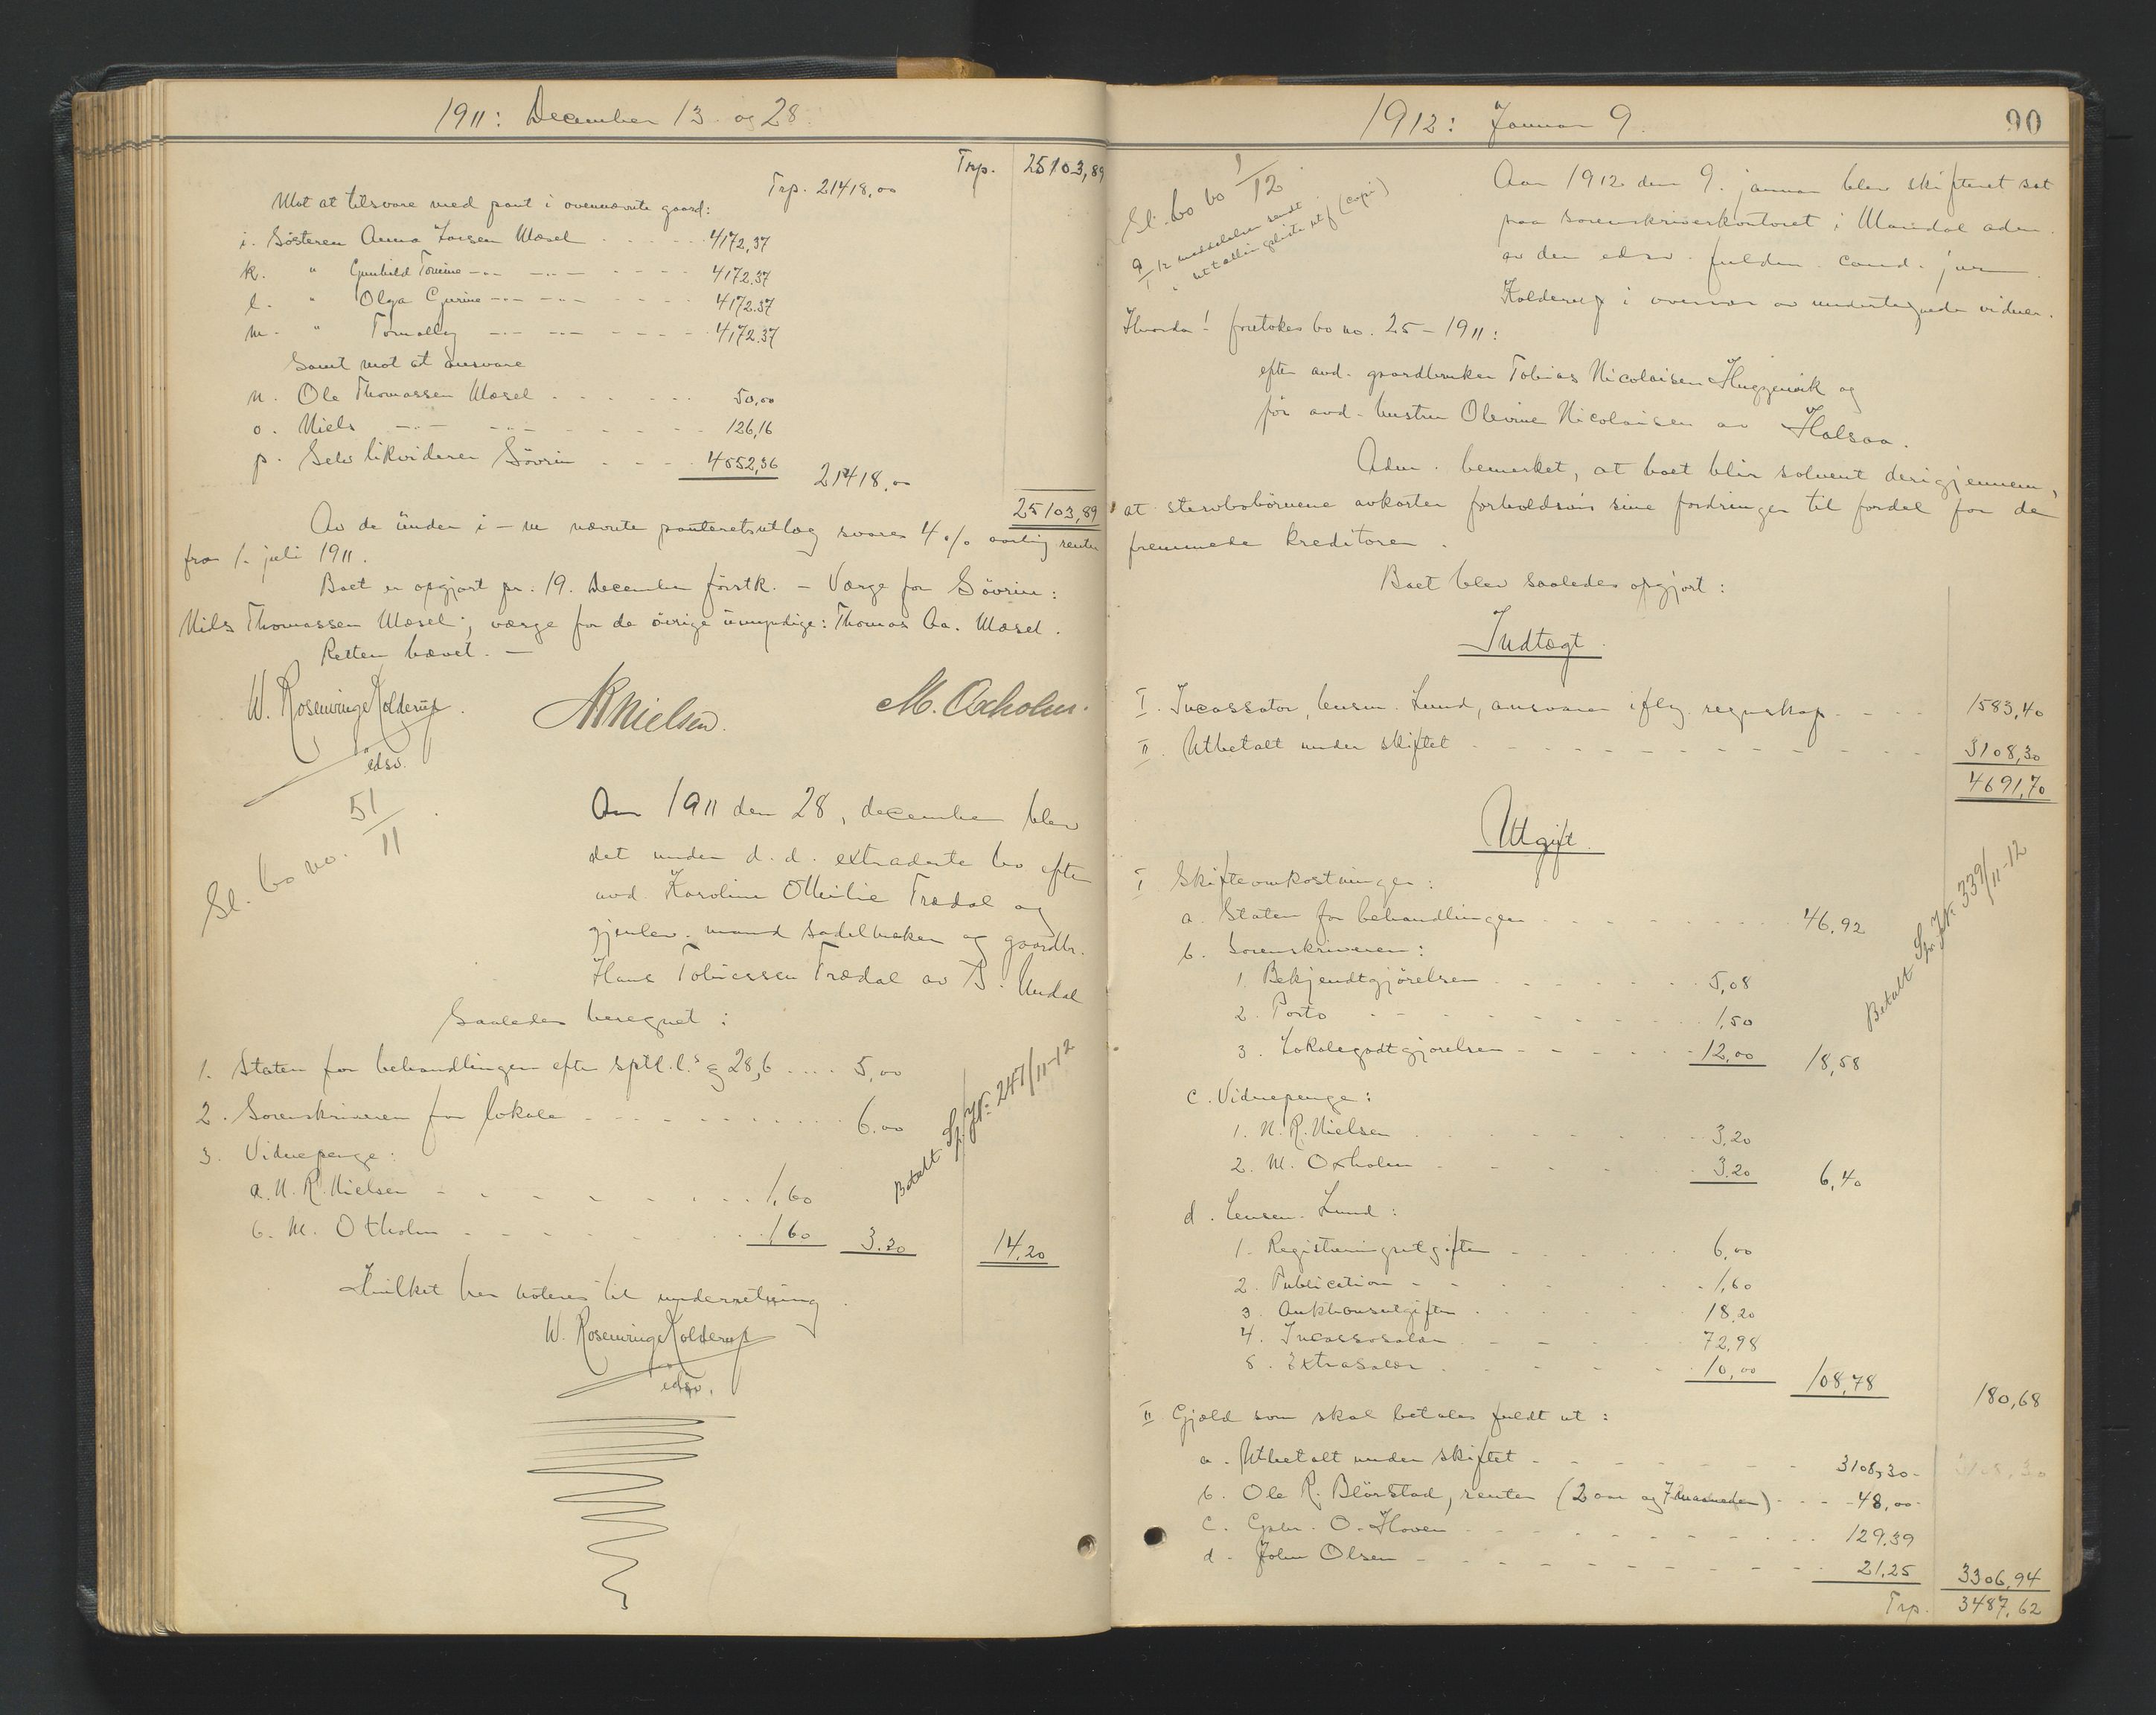 1911: December 13. og 28.
Trp. 25103,89
Trp. 21418,00
Mot at tilsvare med pant i ovennævnte gaard:
i. Søsteren Anna Larsen Mæsel . . . . . 4172,37
k. " Gunhild Tomine -..- -..- . . . . 4172.37
l. " Olga Gurine -..- -..- . . . . 4172.37
m. " Tomalby -..- -..- . . . . 4172.37
Samt mot at ansvare
n. Ole Thomassen Mæsel . . . . . . 50,00
o. Niels -..- -..- . . . . . . 126,16
p. Selv likviderer Sövrin . . . . 4552,36 21418,00
25103,89
Av de under i - m nævnte panteretsutlæg svares 4 % aarlig rente
fra 1. juli 1911.
Boet er opgjort pr. 19. December førstk. - Værge for Sövrin:
Nils Thomassen Mæsel; værge for de øvrige umyndige: Thomas Aa. Mæsel.
Retten hævet. -
W. Rosenvinge Kolderup. NRNielsen. M. Oxholm.
edsv.
Sl. bo no. 51/11
Aar 1911 den 28, december blev
det under d. d. extraderte bo efter
avd. Karoline Othilie Trædal og
gjenlev. mand sadelmaker og gaardbr.
Hans Tobiessen Trædal av S. Undal
saaledes beregnet:
1. Staten for behandlingen efter sptl. l.s § 28,6 .... 5,00
2. Sorenskriveren for lokale . . . . . . . . . . 6.00
3. Vidnepenge:
a. N. R. Nielsen . . . . . . . . 1,60
b. M. Oxholm . . . . . . . . 1,60 3.20 14,20
Betalt Sp. J.N. 247/11-12
Hvilket her noteres til underretning.
W. Rosenvinge Kolderup
edsv.
1912: Januar 9.
90
Sl. bo no 1/12
9/1 12 meddelelser sendt
i uttællingsliste utf (copi)
Aar 1912 den 9. januar blev skifteret sat
paa sorenskriverkontoret i Mandal adm.
av den edsv. fuldm. cand. jur.
Kolderup i overvær av undertegnede vidner.
Hvorda! foretokes bo no. 25 - 1911:
efter avd. gaardbruker Tobias Nicolaisen Skuggevik og
før avd. hustru Olevine Nicolaisen av Halsaa.
Adm. bemerket, at boet blir solvent derigjennem,
at stervbobørnene avkorter forholdsvis sine fordringer til fordel for de
fremmede kreditorer.
Boet blev saaledes opgjort:
Indtægt.
I. Incassator, lensm. Lund, ansvarer iflg. regnskap . . . . 1583,40
II. Utbetalt under skiftet . . . . . . . . . . . . 3108,30
4691,70
Utgift.
I Skifteomkostninger:
a. Staten for behandlingen . . . . . . . . . 46,92
b. Sorenskriveren:
1. Bekjendtgjörelsen . . . . . . . 5,08
2. Porto . . . . . . . . . 1,50
3. Lokalegodtgjörelsen . . . . . 12,00 18,58
c. Vidnepenge:
1. N. R. Nielsen . . . . . . . 3,20
2. M. Oxholm . . . . . . 3.20 6,40
d. Lensm. Lund:
1. Registreringsutgifter . . . . . . 6,00
2. Publication . . . . . . . 1,60
3. Auktionsutgifter . . . . . . 18,20
4. Incassosalær . . . . . 72,98
5. Extrasalær . . . . . . 10,00 108,78 180,68
Betalt Sp. J.N. 339/11-12
II Gjæld som skal betales fuldt ut:
a. Utbetalt under skiftet . . . . . . . . 3108,30 3108,30
b. Ole R. Blörstad, renter (2 aar og 7 maaneder) . . . . 48,00
c. Gabr. O. Hoven . . . . . . . . . 129.39
d. John Olsen . . . . . . . . . . 21,25 3306,94
Trp. 3487,62